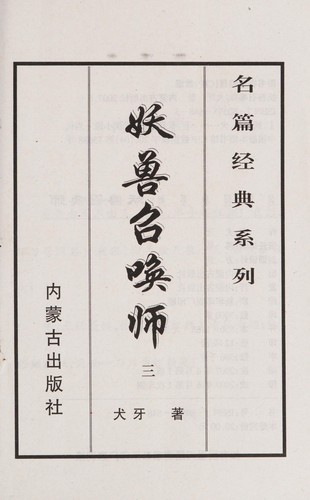 名篇经典系列
妖兽召唤师
三
犬牙 著
内蒙古出版社